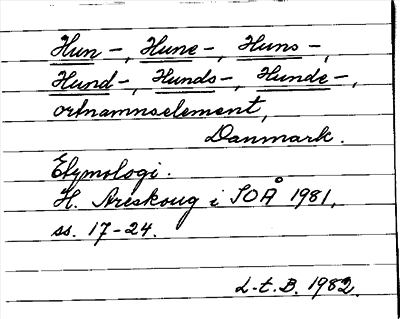 Hun-, Hune-, Huns-,
Hund-, Hunds-, Hunde-,
ortnamnselement,
Danmark.
Etymologi.
H. Areskoug i SOÅ 1981,
ss. 17-24.
L.t.B. 1982.